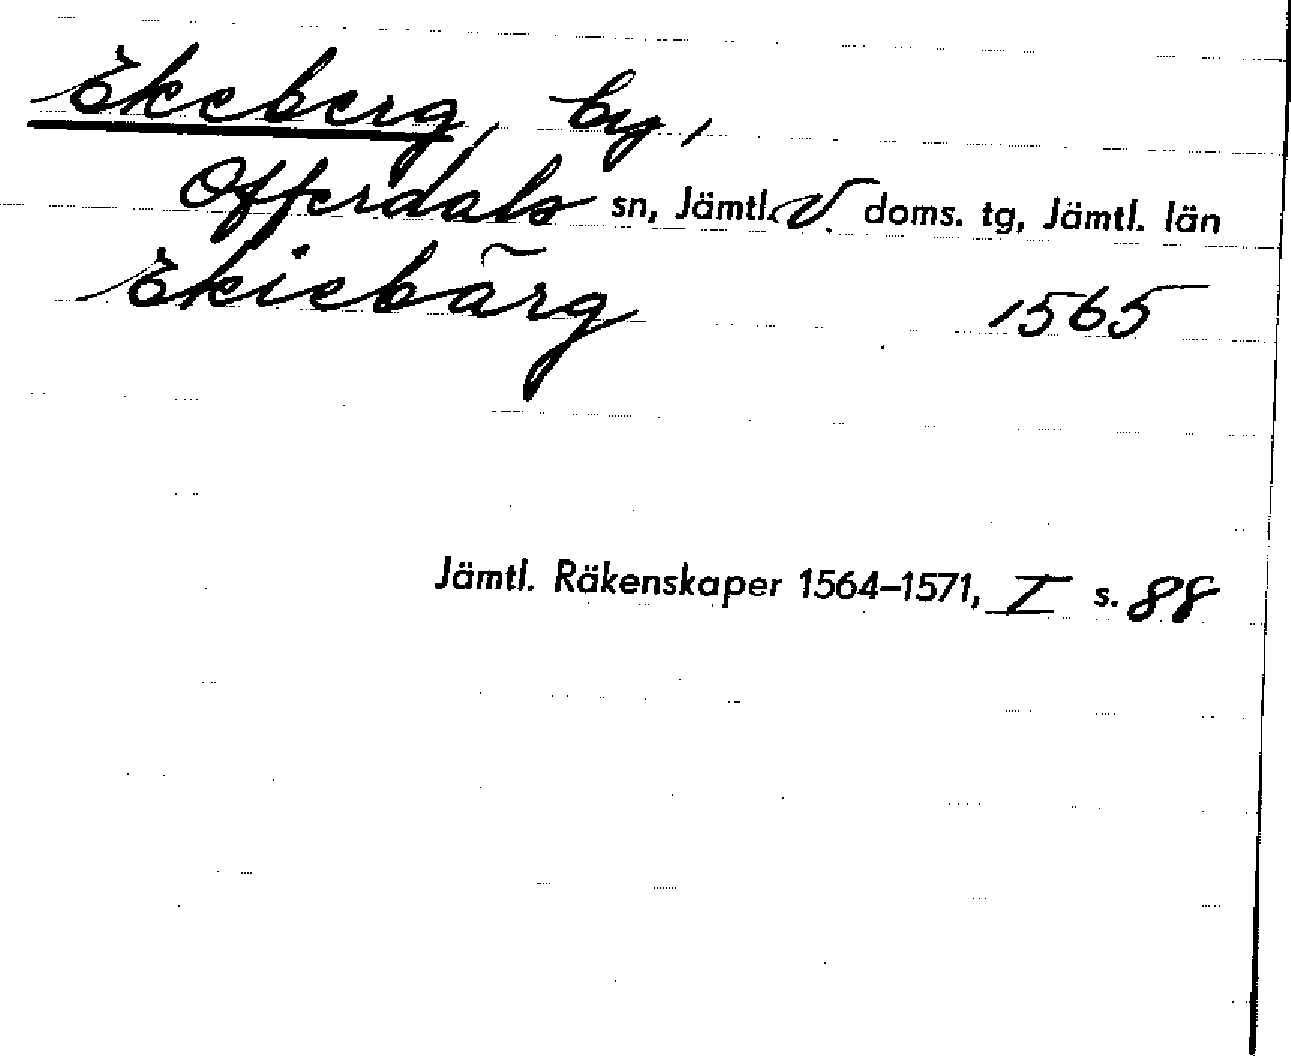 Ekeberg, by,
Offerdals sn, Jämtl. V. doms. tg, Jämtl. län
Ekiebärg 1565
Jämtl. Räkenskaper 1564–1571, I s. 88